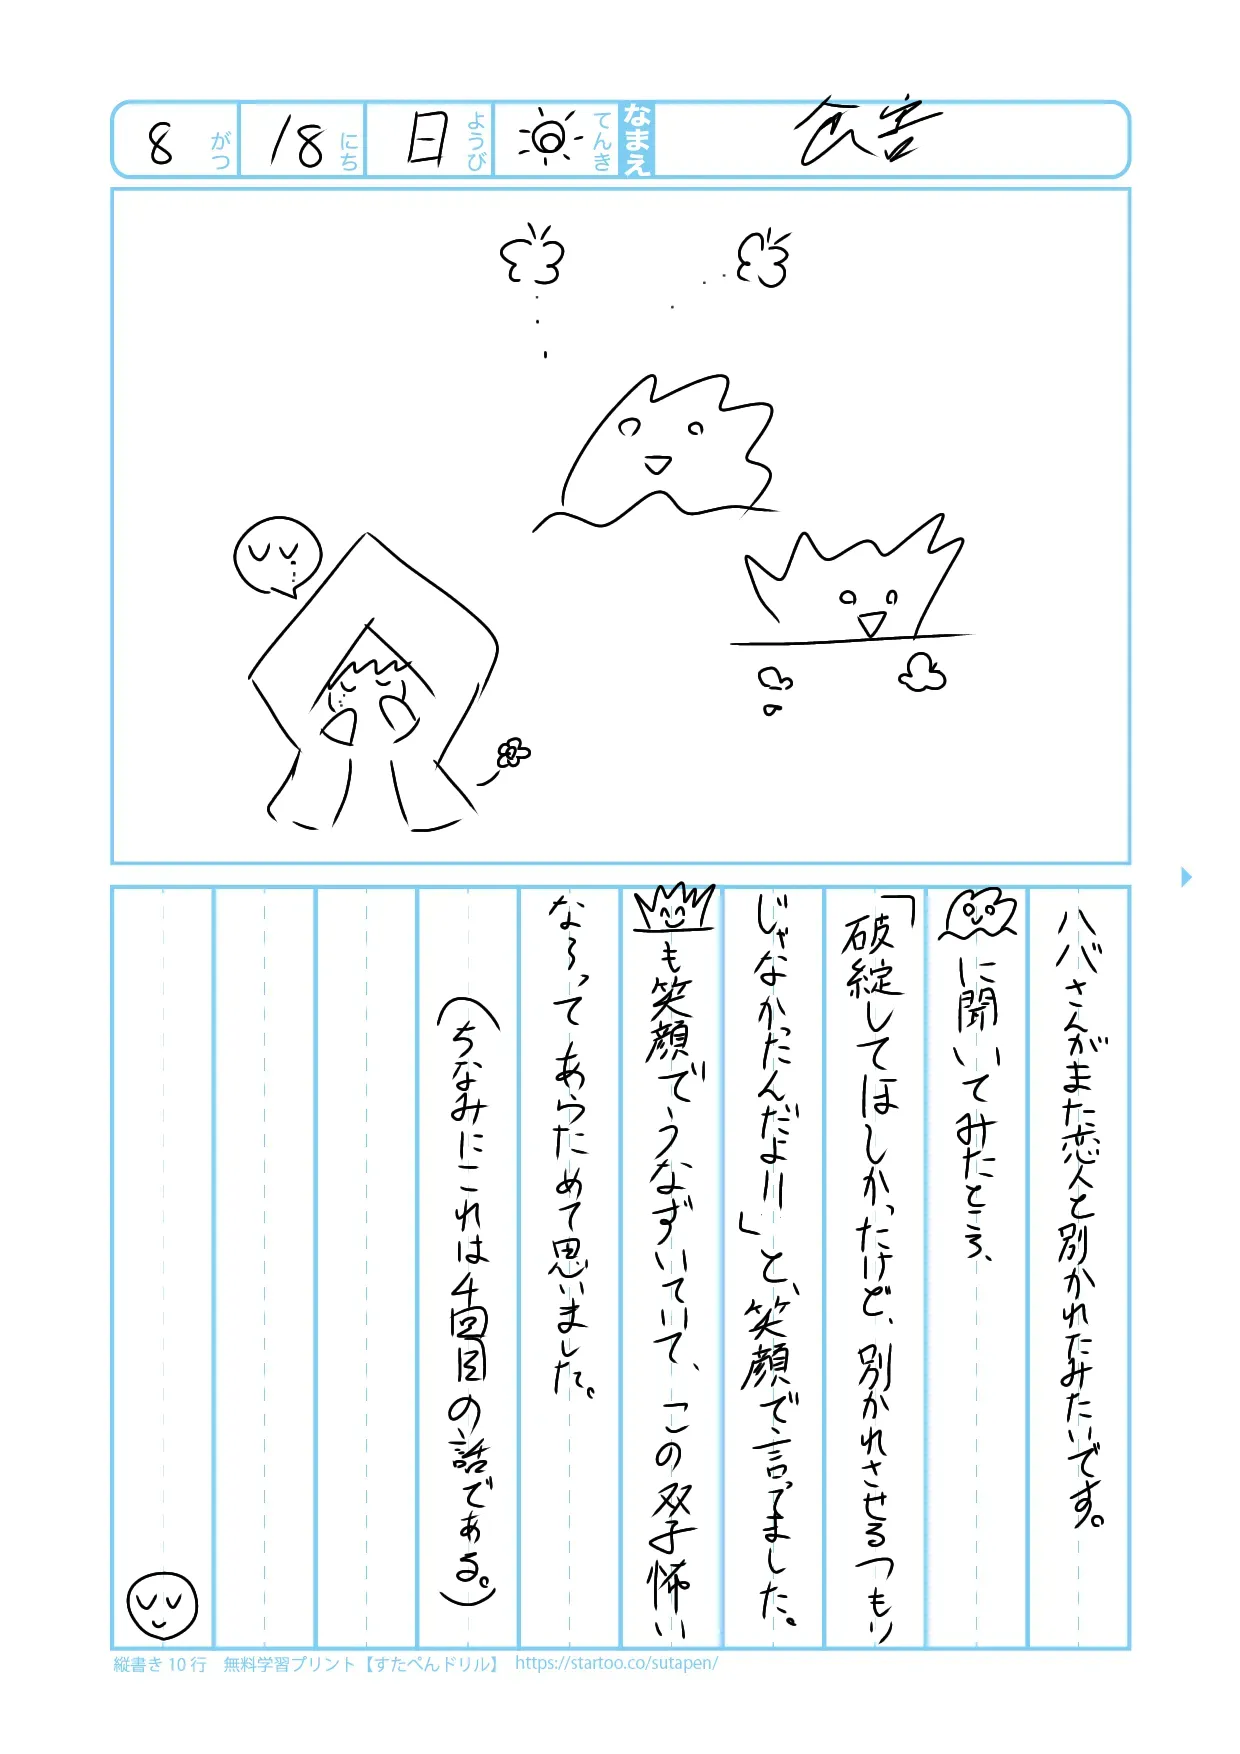 8 がつ 18 にち 日 ようび てんき なまえ 食害
ハバさんがまた恋人と別かれたみたいです。
に聞いてみたところ、
「破綻してほしかったけど、別かれさせるつもり
じゃなかったんだよ!!」と、笑顔で言ってました。
も笑顔でうなずいていて、この双子怖い
なぁってあらためて思いました。
(ちなみにこれは4回目の話である。)
縦書き10行 無料学習プリント【すたぺんドリル】 https://startoo.co/sutapen/